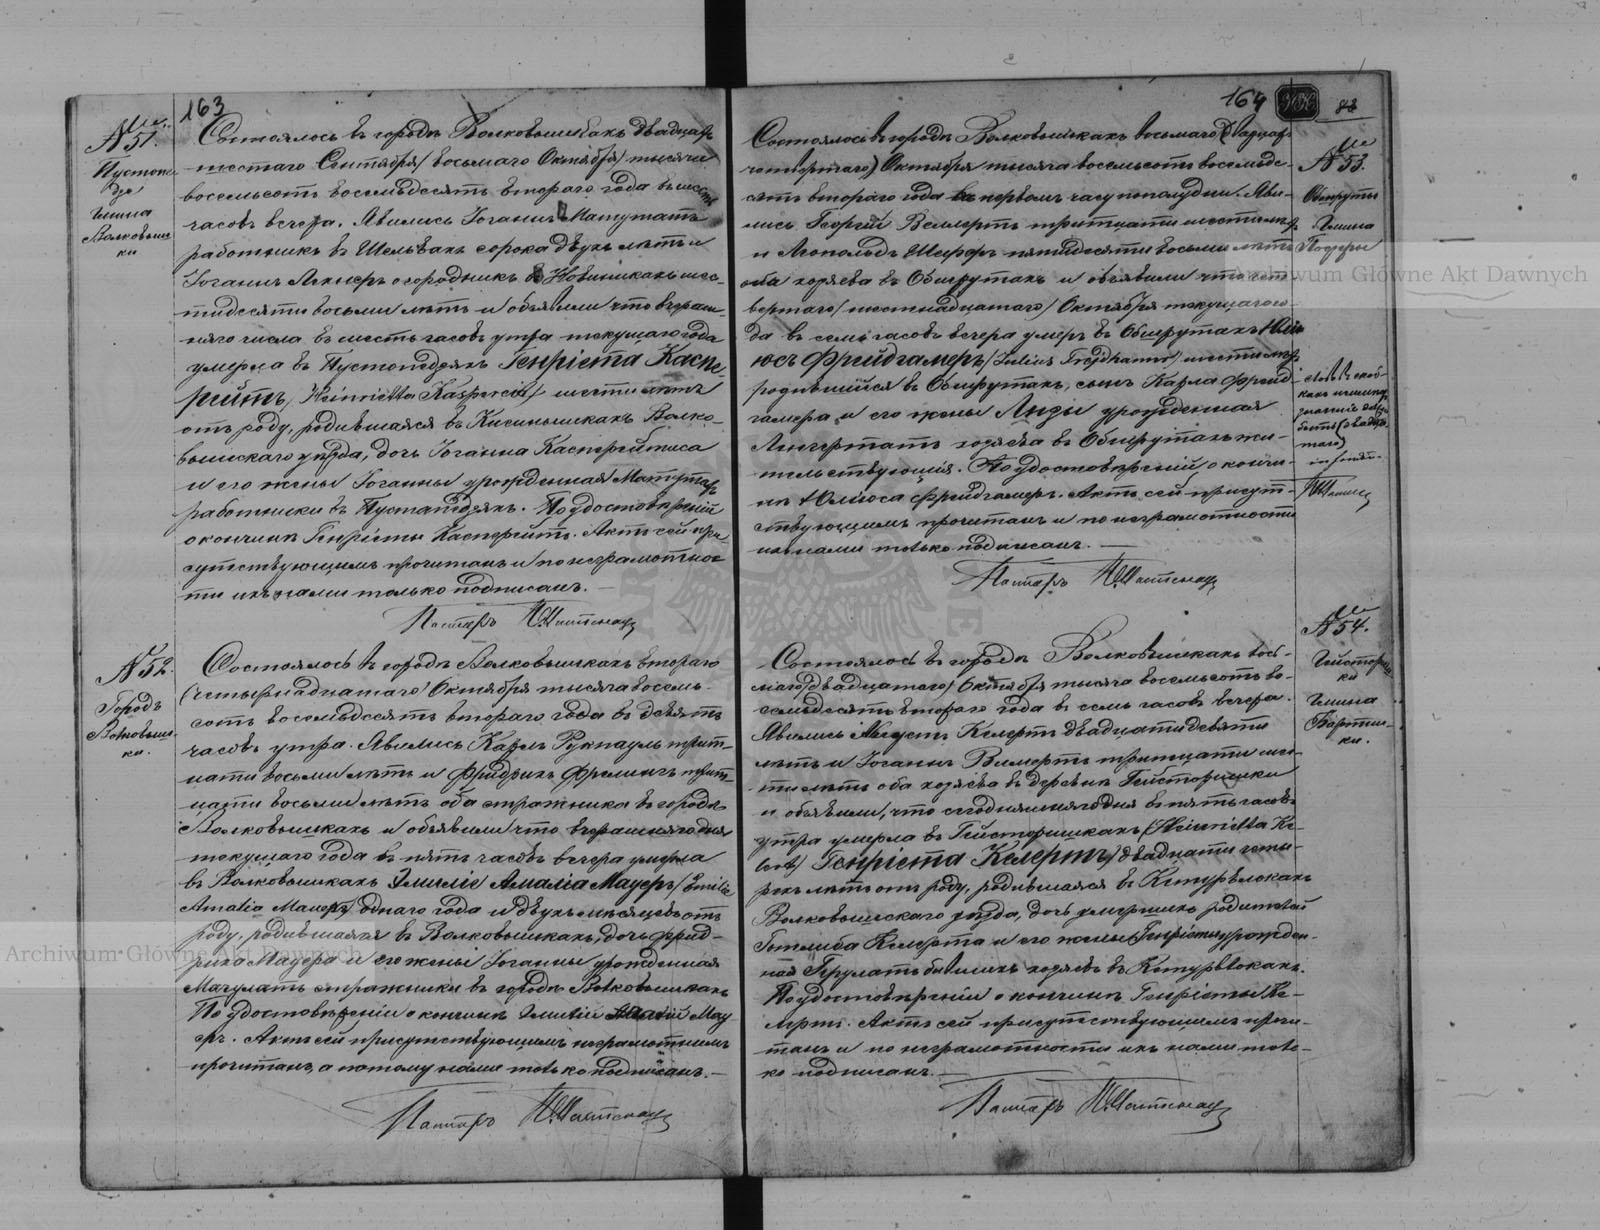 163
№ 51.
Пустопе-
дзе
Гмина
Волковыш-
ки
Состоялось въ городѣ Волковышкахъ двадцать
шестаго Сентября/восьмаго Октября/тысяча
восемьсотъ восемьдесятъ втораго года въ шесть
часовъ вечера. Явились Іоганнъ Матутатъ
работникъ въ Шельвахъ сорока двухъ лѣтъ и
Іоганнъ огородникъ въ Новишкахъ шес-
тидесяти восьми лѣтъ и объявили что вчераш-
няго числа въ шесть часовъ утра текущаго года
умерла въ Пустопедзяхъ Генріета Каспе-
рейтъ, /Heinrietta Kaspereit/ шести лѣтъ
отъ роду, родившаяся въ Волко-
вышскаго уѣзда, дочь Іоганна Касперейтиса
и его жены Іоганны урожденная Матутатъ
работники въ Пустапедзяхъ. По удостовѣреніи
о кончинѣ Генріеты Касперейтъ. Актъ сей при-
сутствующимъ прочитанъ и по неграмотнос-
ти ихъ нами только подписанъ.—
Пасторъ
№ 52.
Городъ
Волковыш-
ки.
Состоялось въ городѣ Волковышкахъ втораго
(четырнадцатаго) Октября тысяча восемь-
сотъ восемьдесятъ втораго года въ девять
часовъ утра. Явились Карлъ Рукпауль трит-
цати восьми лѣтъ и Фридрихъ Фрелихъ трит-
цати восьми лѣтъ оба стражника въ городѣ
Волковышкахъ и объявили что вчерашняго дня
текущаго года въ пять часовъ вечера умерла
въ Волковышкахъ Эмиліе Амалія Мауеръ/Emilie
Amalia Mauer/ однаго года и двухъ мѣсяцевъ отъ
роду, родившаяся въ Волковышкахъ, дочь Фрид-
риха Мауера и его жены Іоганны урожденная
Мачулатъ стражники въ городѣ Волковышкахъ
По удостовѣреніи о кончинѣ Эмиліи Амаліи Мау-
еръ. Актъ сей присутствующимъ неграмотнымъ
прочитанъ, а потому нами только подписанъ.—
Пасторъ
164
83
Состоялось въ городѣ Волковышкахъ восьмаго (двадцать
четвертаго) Октября тысяча восемьсотъ восемьде-
сятъ втораго года въ первомъ часу пополудни. Яви-
лись Георгій Веллертъ тритцати шести лѣтъ
и Леопольдъ Шефферъ пятидесяти восьми лѣтъ
оба хозяева въ Обшрутахъ и объявили что чет-
вертаго/шестнадцатаго/Октября текущаго го-
да въ семь часовъ вечера умеръ въ Обшрутахъ Юлі-
юсъ Фрейдгамеръ/Julius Frejdhamer/шести лѣтъ
родившійся въ Обшрутахъ, сынъ Карла Фрейд-
гамера и его жены урожденная
Лингертатъ хозяева въ Обшрутахъ жи-
тельствующія. По удостовѣреніи о кончи-
нѣ Юліюса Фрейдгамеръ. Актъ сей присут-
ствующимъ прочитанъ и по неграмотности
ихъ нами только подписанъ.—
Пасторъ
№ 53.
Обшруты
Гмина
№ 54.
Гейсториш-
ки
Гмина
Бартни-
ки.
Состоялось въ городѣ Волковышкахъ вось-
маго/двадцатаго/Октября тысяча восемьсотъ во-
семьдесятъ втораго года въ семь часовъ вечера.
Явились Августъ Келертъ двадцати девяти
лѣтъ и Іоганнъ Вилертъ тритцати ше-
сти лѣтъ оба хозяева въ деревнѣ Гейсторишки
и объявили, что сегодняшняго дня въ пять часовъ
утра умерла въ Гейсторишкахъ (Heinrietta Ke-
lert) Генріета Келертъ, двадцати четы-
рехъ лѣтъ отъ роду, родившаяся въ
Волковышскаго уѣзда, дочь умершихъ родителей
Готлиба Келерта и его жены Генріеты урожден-
ная бывшихъ хозяевъ въ
По удостовѣреніи о кончинѣ Генріеты Ке-
лертъ. Актъ сей присутствующимъ прочи-
танъ и по неграмотности ихъ нами толь-
ко подписанъ.—
Пасторъ
Archiwum Główne Akt Dawnych
Archiwum Główne Akt Dawnych